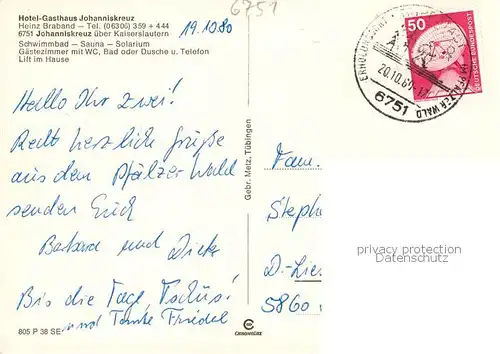 Hotel-Gasthaus Johanniskreuz
Heinz Braband — Tel. (06306) 359 + 444
6751 Johanniskreuz über Kaiserslautern
Schwimmbad — Sauna — Solarium
Gästezimmer mit WC, Bad oder Dusche u. Telefon
Lift im Hause
19.10.80
6751
Hallo Ihr zwei!
Recht herzlich Grüße
aus dem Pfälzer Wald
senden Euch
Barbara und Dieter
Bis die Tage, Tschüs!
und Tante Friedel
805 P 38 SE
Gebr. Metz, Tübingen
50
DEUTSCHE BUNDESPOST
20.10.80-17
PFÄLZER WALD
6751
Fam.
Steph
D.-Lies
5860
privacy protection